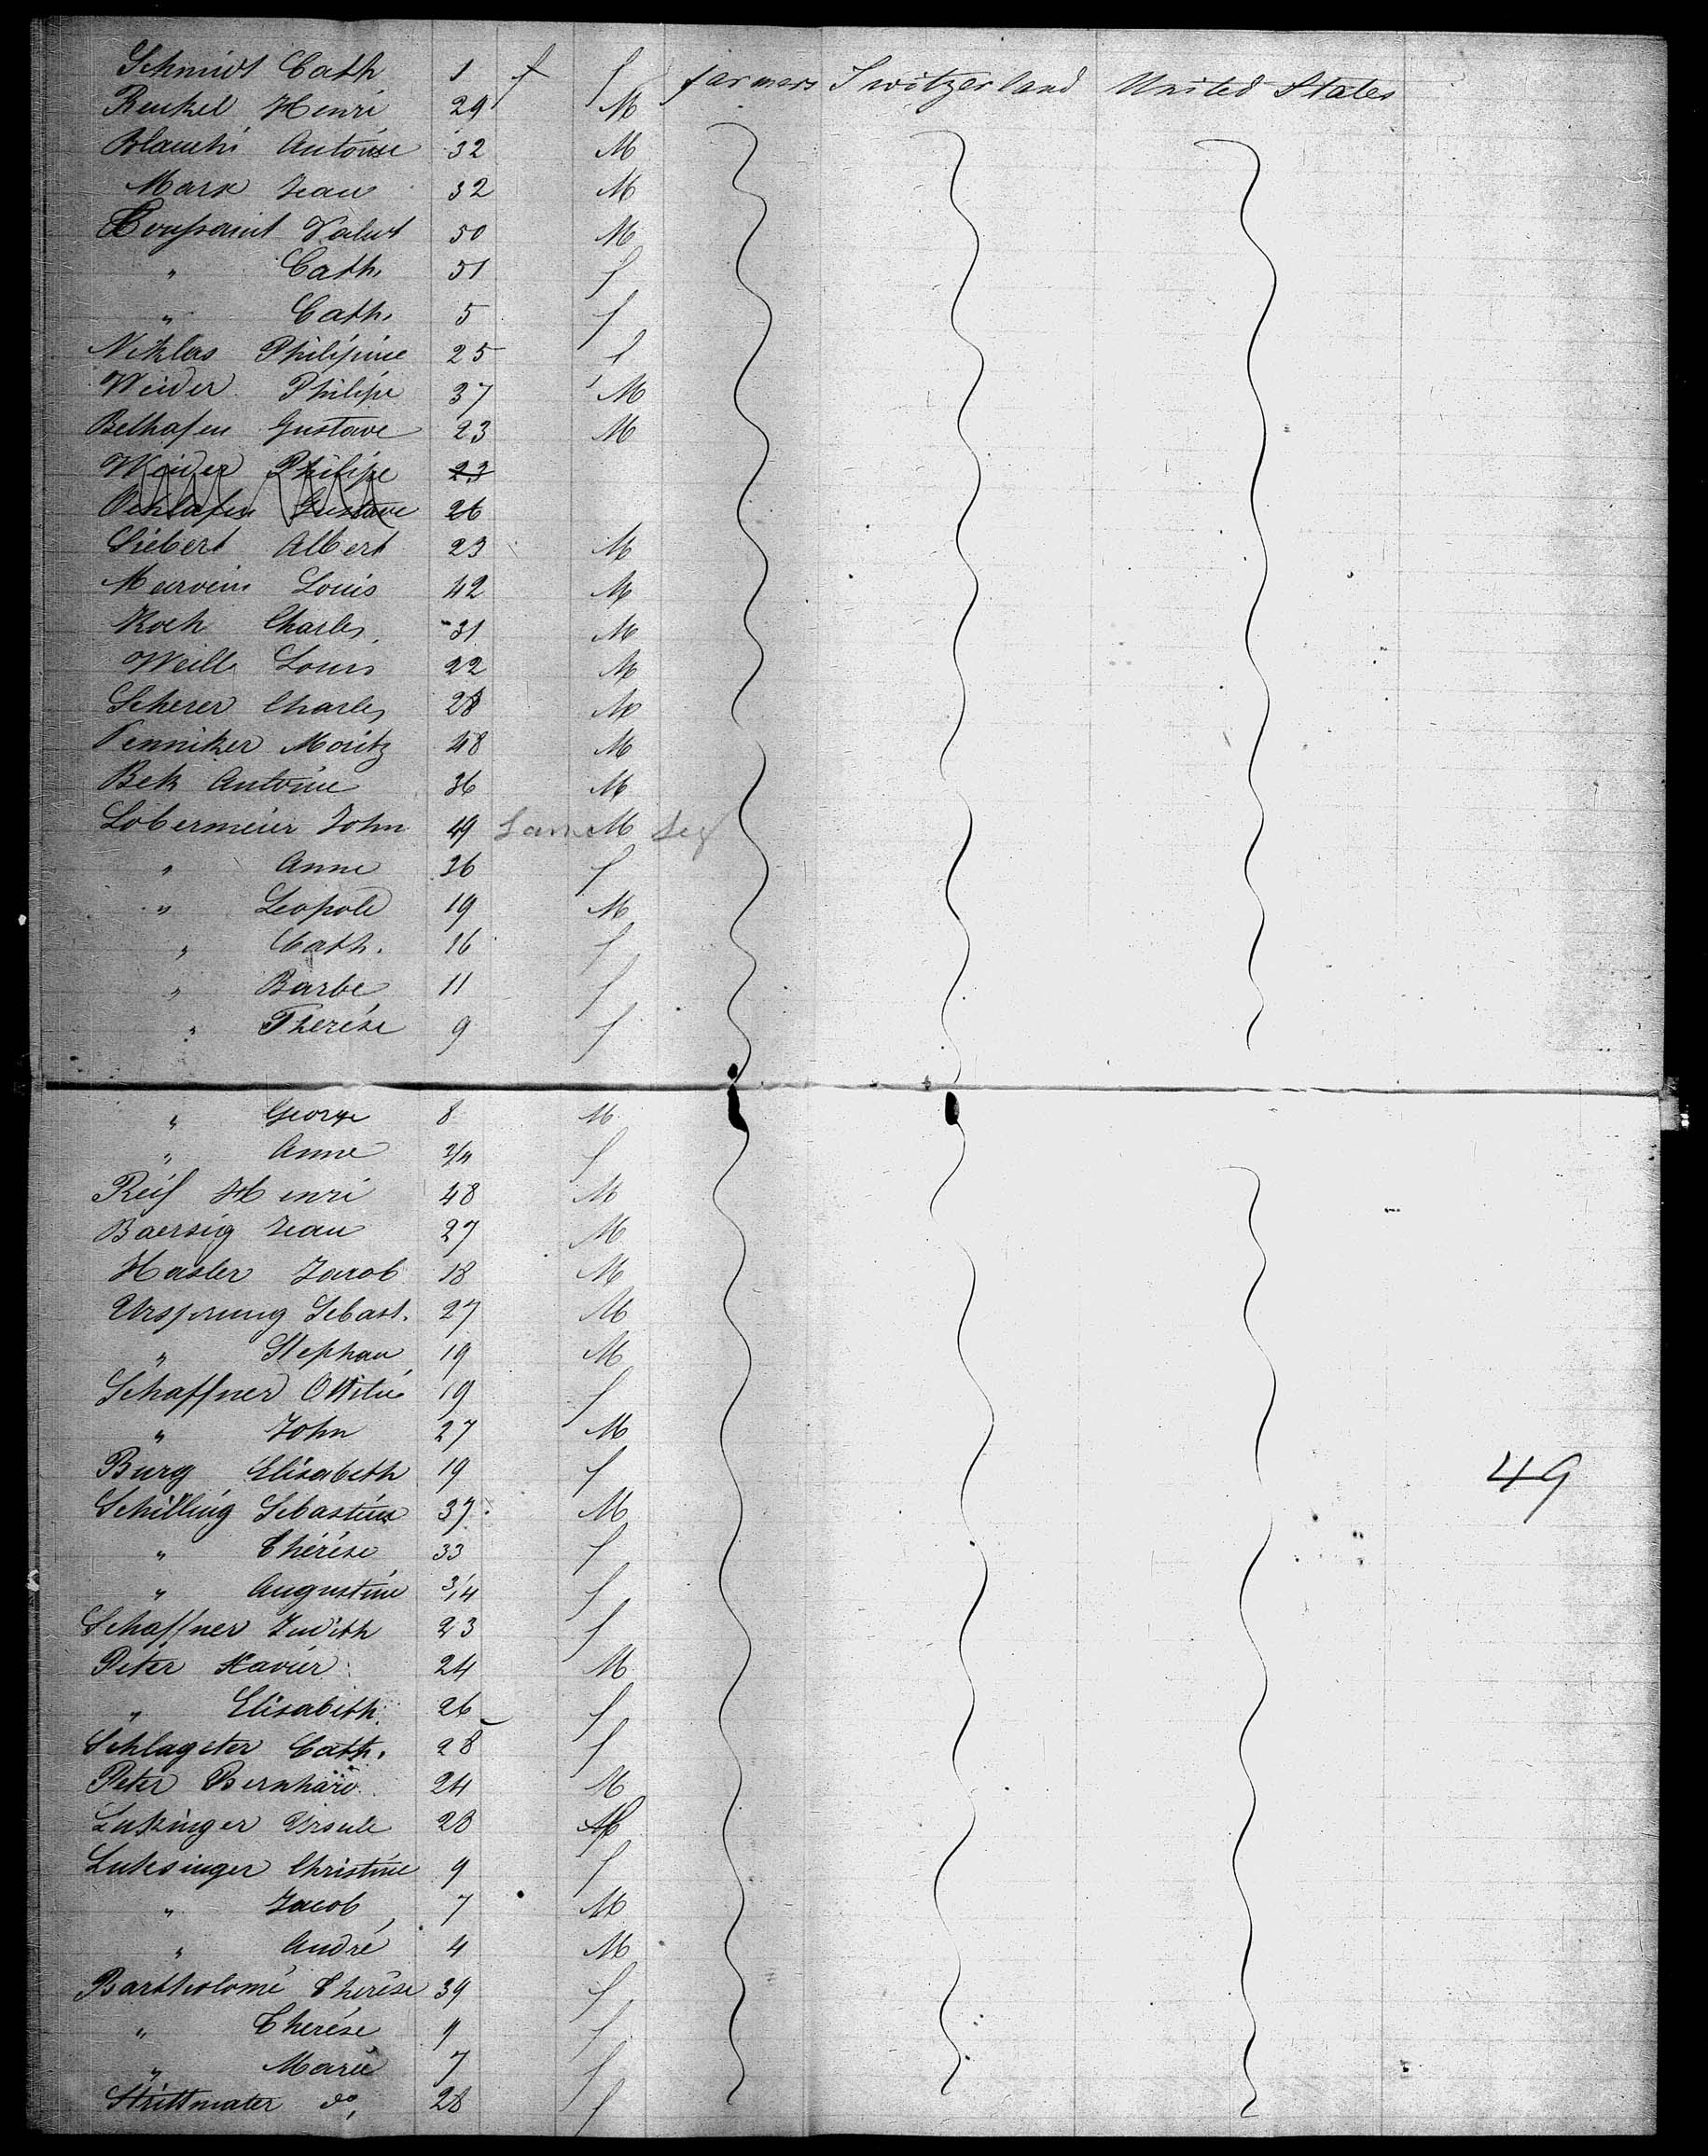 Schmidt Cath 1 f f farmers Switzerland United States
Renkel Henri 29 M
Blanchi Antoine 32 M
Marx Jean 32 M
Toussaint Valent 50 M
" Cath. 51 f
" Cath. 5 f
Niklas Philipine 25 f
Weider Philipe 37 M
Belhafen Gustave 23 M
Weider Philipe 23
Gustave 26
Siebert Albert 23 M
Louis 42 M
Koch Charles 31 M
Weill Louis 22 M
Scherer Charles 28 M
Penniker Moritz 48 M
Bek Antoine 36 M
Lobermeier John 49 M
" Anne 36 f
" Leopold 19 M
" Cath. 16 f
" Barbe 11 f
" Therése 9 f
" George 8 M
" Anne 3/4 f
Reif Henri 48 M
Baersig Jean 27 M
Hasler Jacob 18 M
Ursprung Sebast. 27 M
" Stephan 19 M
Schaffner Ottilie 19 f
" John 27 M
Burg Elisabeth 19 f
Schilling Sebastien 37 M
" Thérése 33 f
" Augustine 3/4 f
Schaffner Judith 23 f
Peter Xavier 24 M
" Elisabeth 26 f
Schlageter Cath. 28 f
Peter Bernhard 24 M
49
Luksinger Ursule 28 f
Luksinger Christine 9 f
" Jacob 7 M
" André 4 M
Bartholomé Therése 39 f
" Therése 9 f
" Marie 7 f
Strittmater do, 28 f